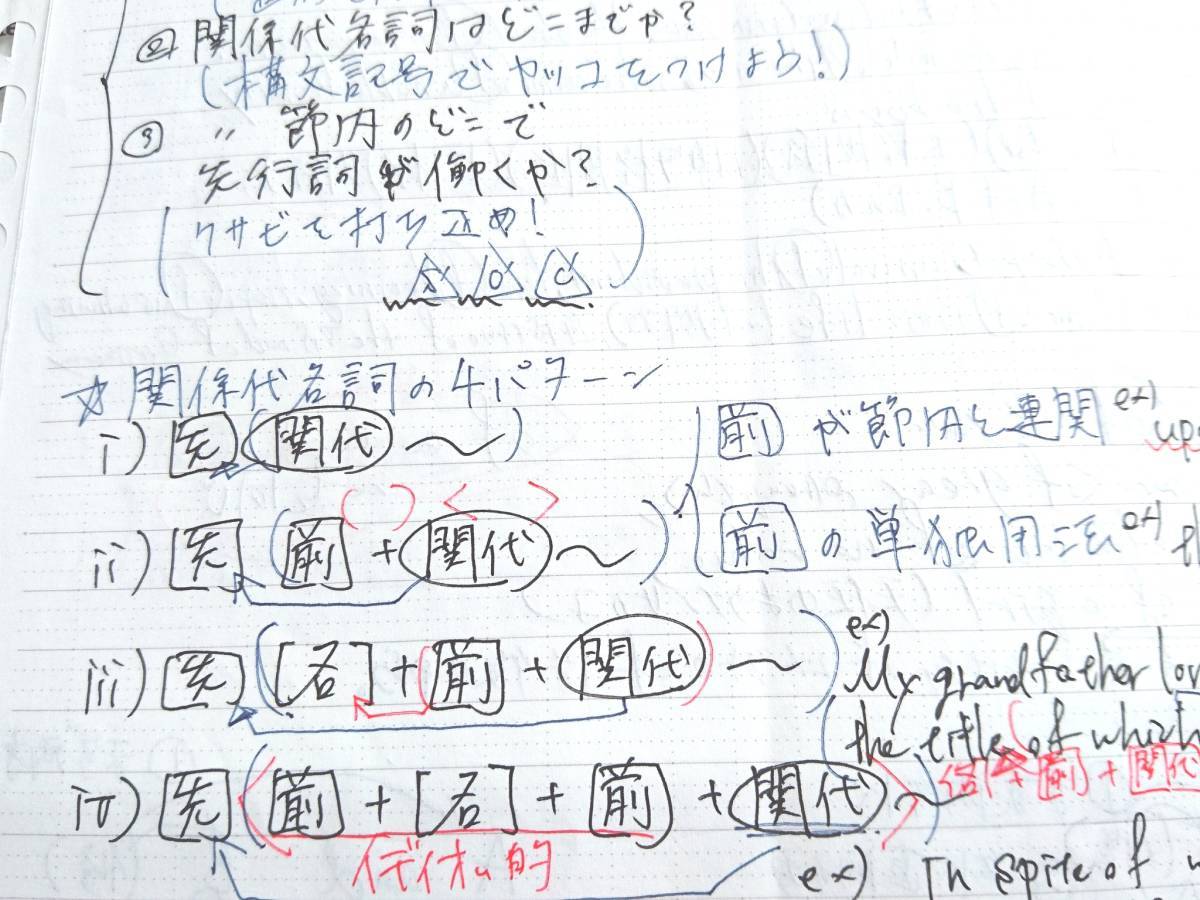 ② 関係代名詞はどこまでか?
(構文記号でヤッコをつけよう!)
③ 〃 節内のどこで
先行詞が働くか?
(クサビを打ち込め!)
S O C
☆ 関係代名詞の4パターン
i) 先 (関代 〜)
前 が節内と連関 ex)
ii) 先 (前 + 関代 〜)
前 の単独用法 ex)
iii) 先 ([名] + 前 + 関代 〜)
ex)
My grandfather
the title of which
名 + 前 + 関代
iv) 先 (前 + [名] + 前 + 関代 〜)
イディオム的
ex) In spite of